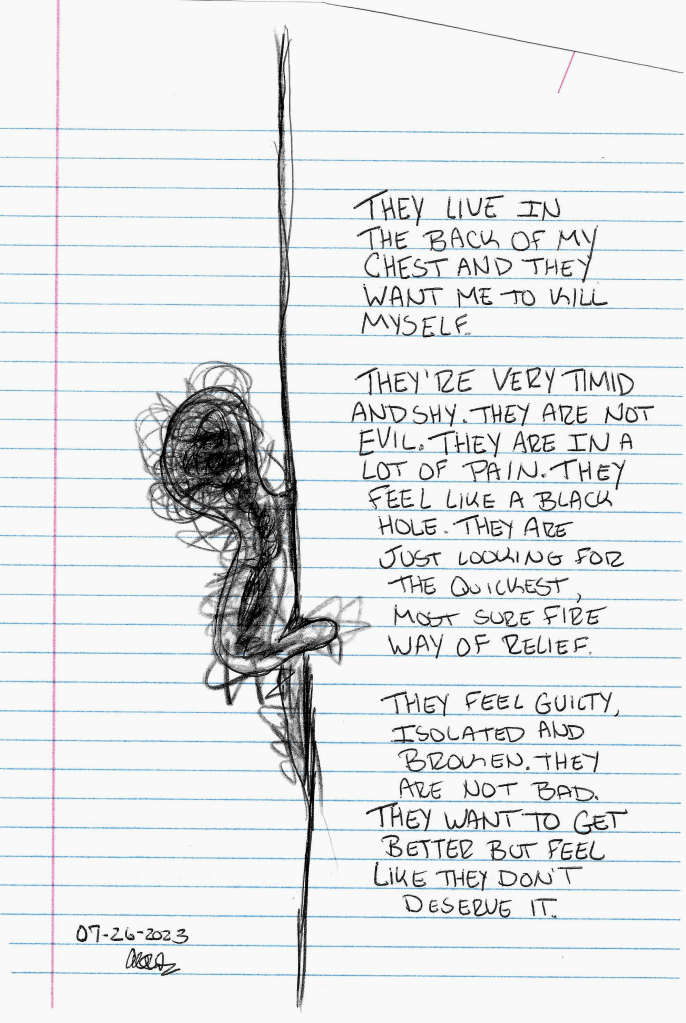 THEY LIVE IN
THE BACK OF MY
CHEST AND THEY
WANT ME TO KILL
MYSELF.
THEY'RE VERY TIMID
AND SHY. THEY ARE NOT
EVIL. THEY ARE IN A
LOT OF PAIN. THEY
FEEL LIKE A BLACK
HOLE. THEY ARE
JUST LOOKING FOR
THE QUICKEST,
MOST SURE FIRE
WAY OF RELIEF.
THEY FEEL GUILTY,
ISOLATED AND
BROKEN. THEY
ARE NOT BAD.
THEY WANT TO GET
BETTER BUT FEEL
LIKE THEY DON'T
DESERVE IT.
07-26-2023